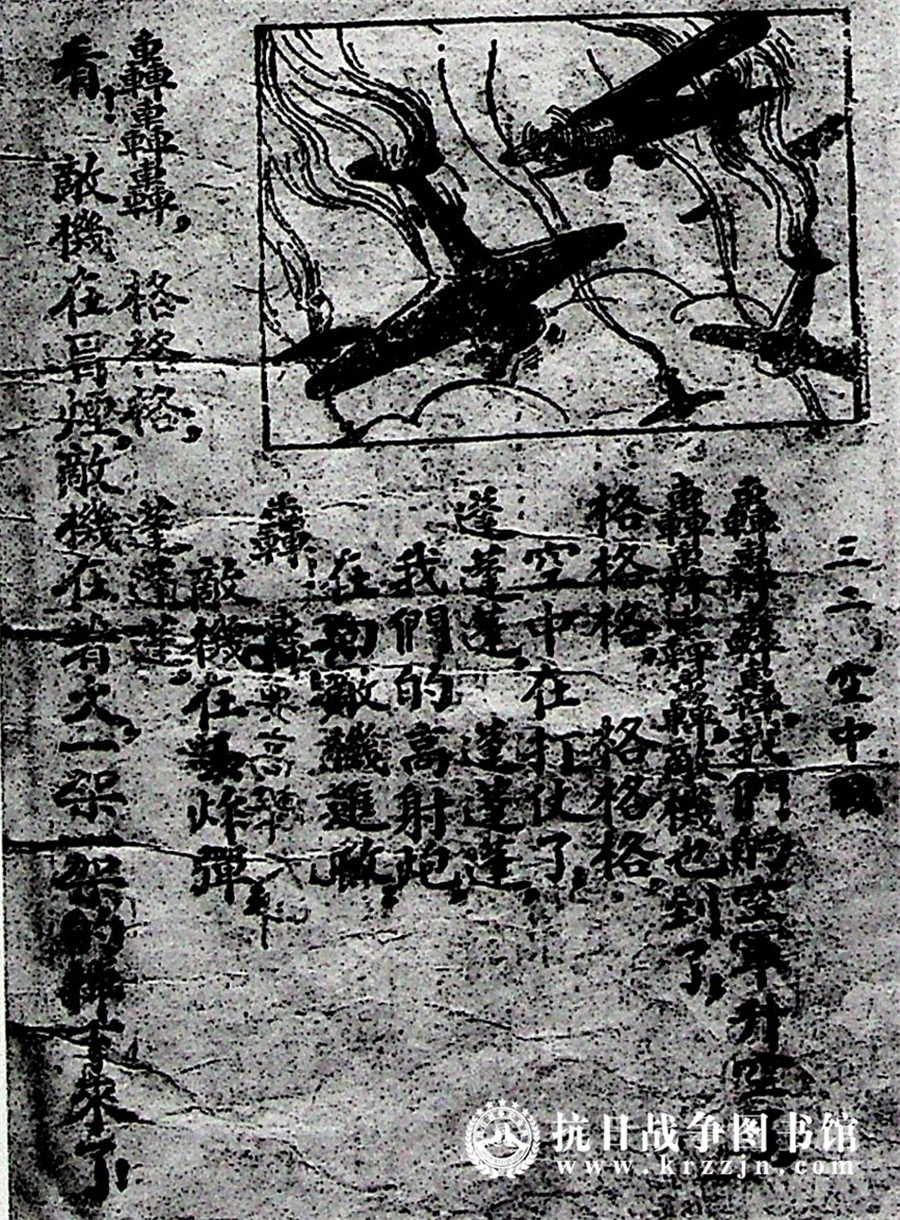 三二、空中戰
轟轟轟轟,我們的空軍升空
轟轟轟轟,敵機也到了,
格格格,格格格,
空中在打仗了,
蓬蓬蓬,蓬蓬蓬,
我們的高射炮,
在向敵機進攻,
轟轟
敵機在炸彈
轟轟轟,格格格,蓬蓬蓬,
看,敵機在冒煙,敵機在着火,一架一架的掉下來了,
抗日战争图书馆
www.krzzjn.com